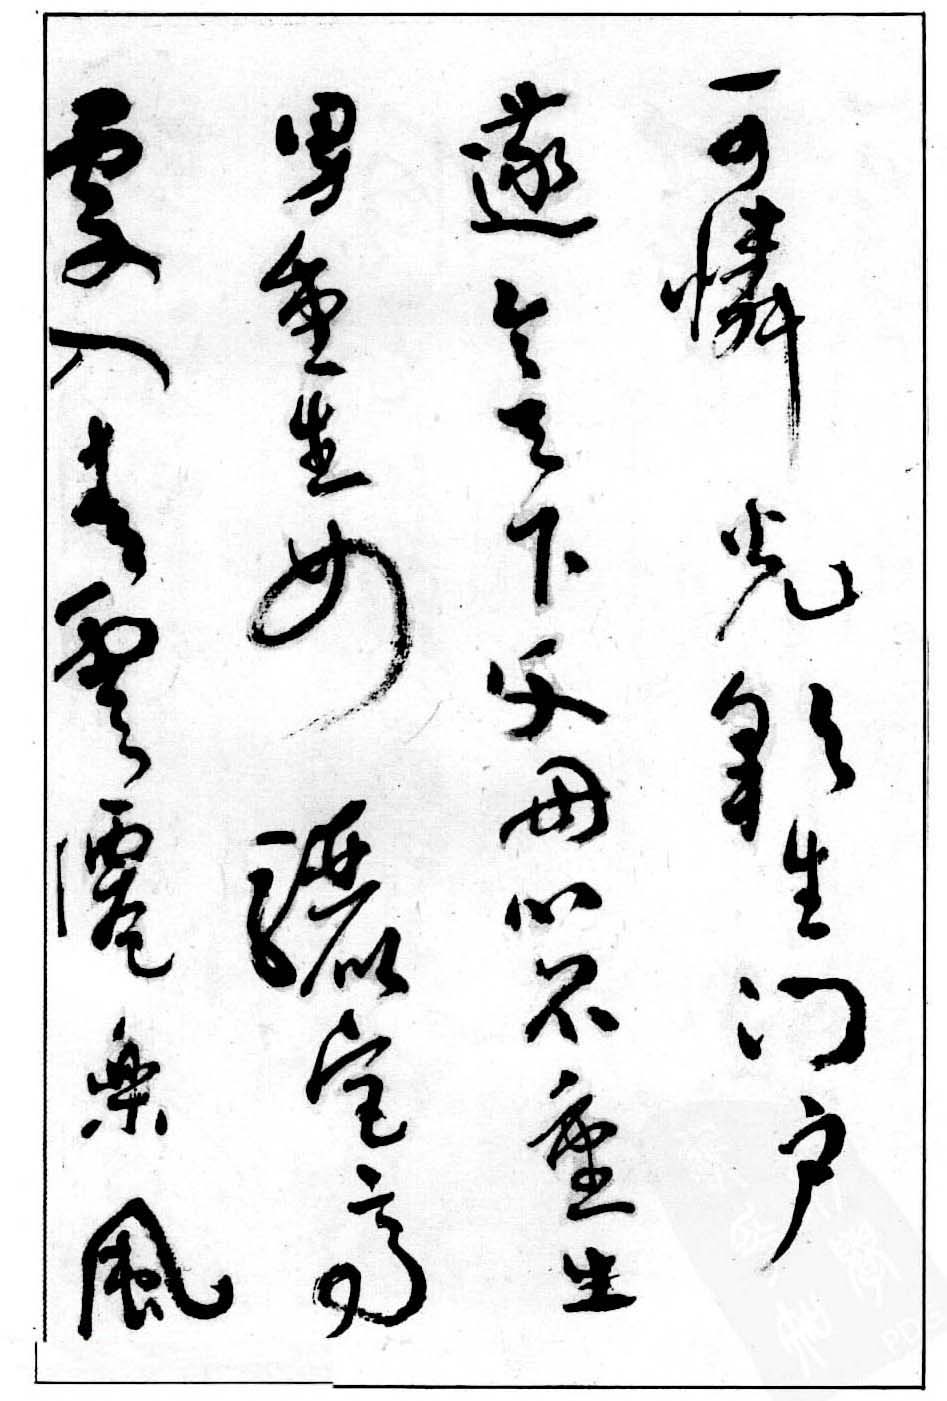 可憐光彩生門户
遂令天下父母心不重生
男重生女驪宮高
處入青雲僊樂風